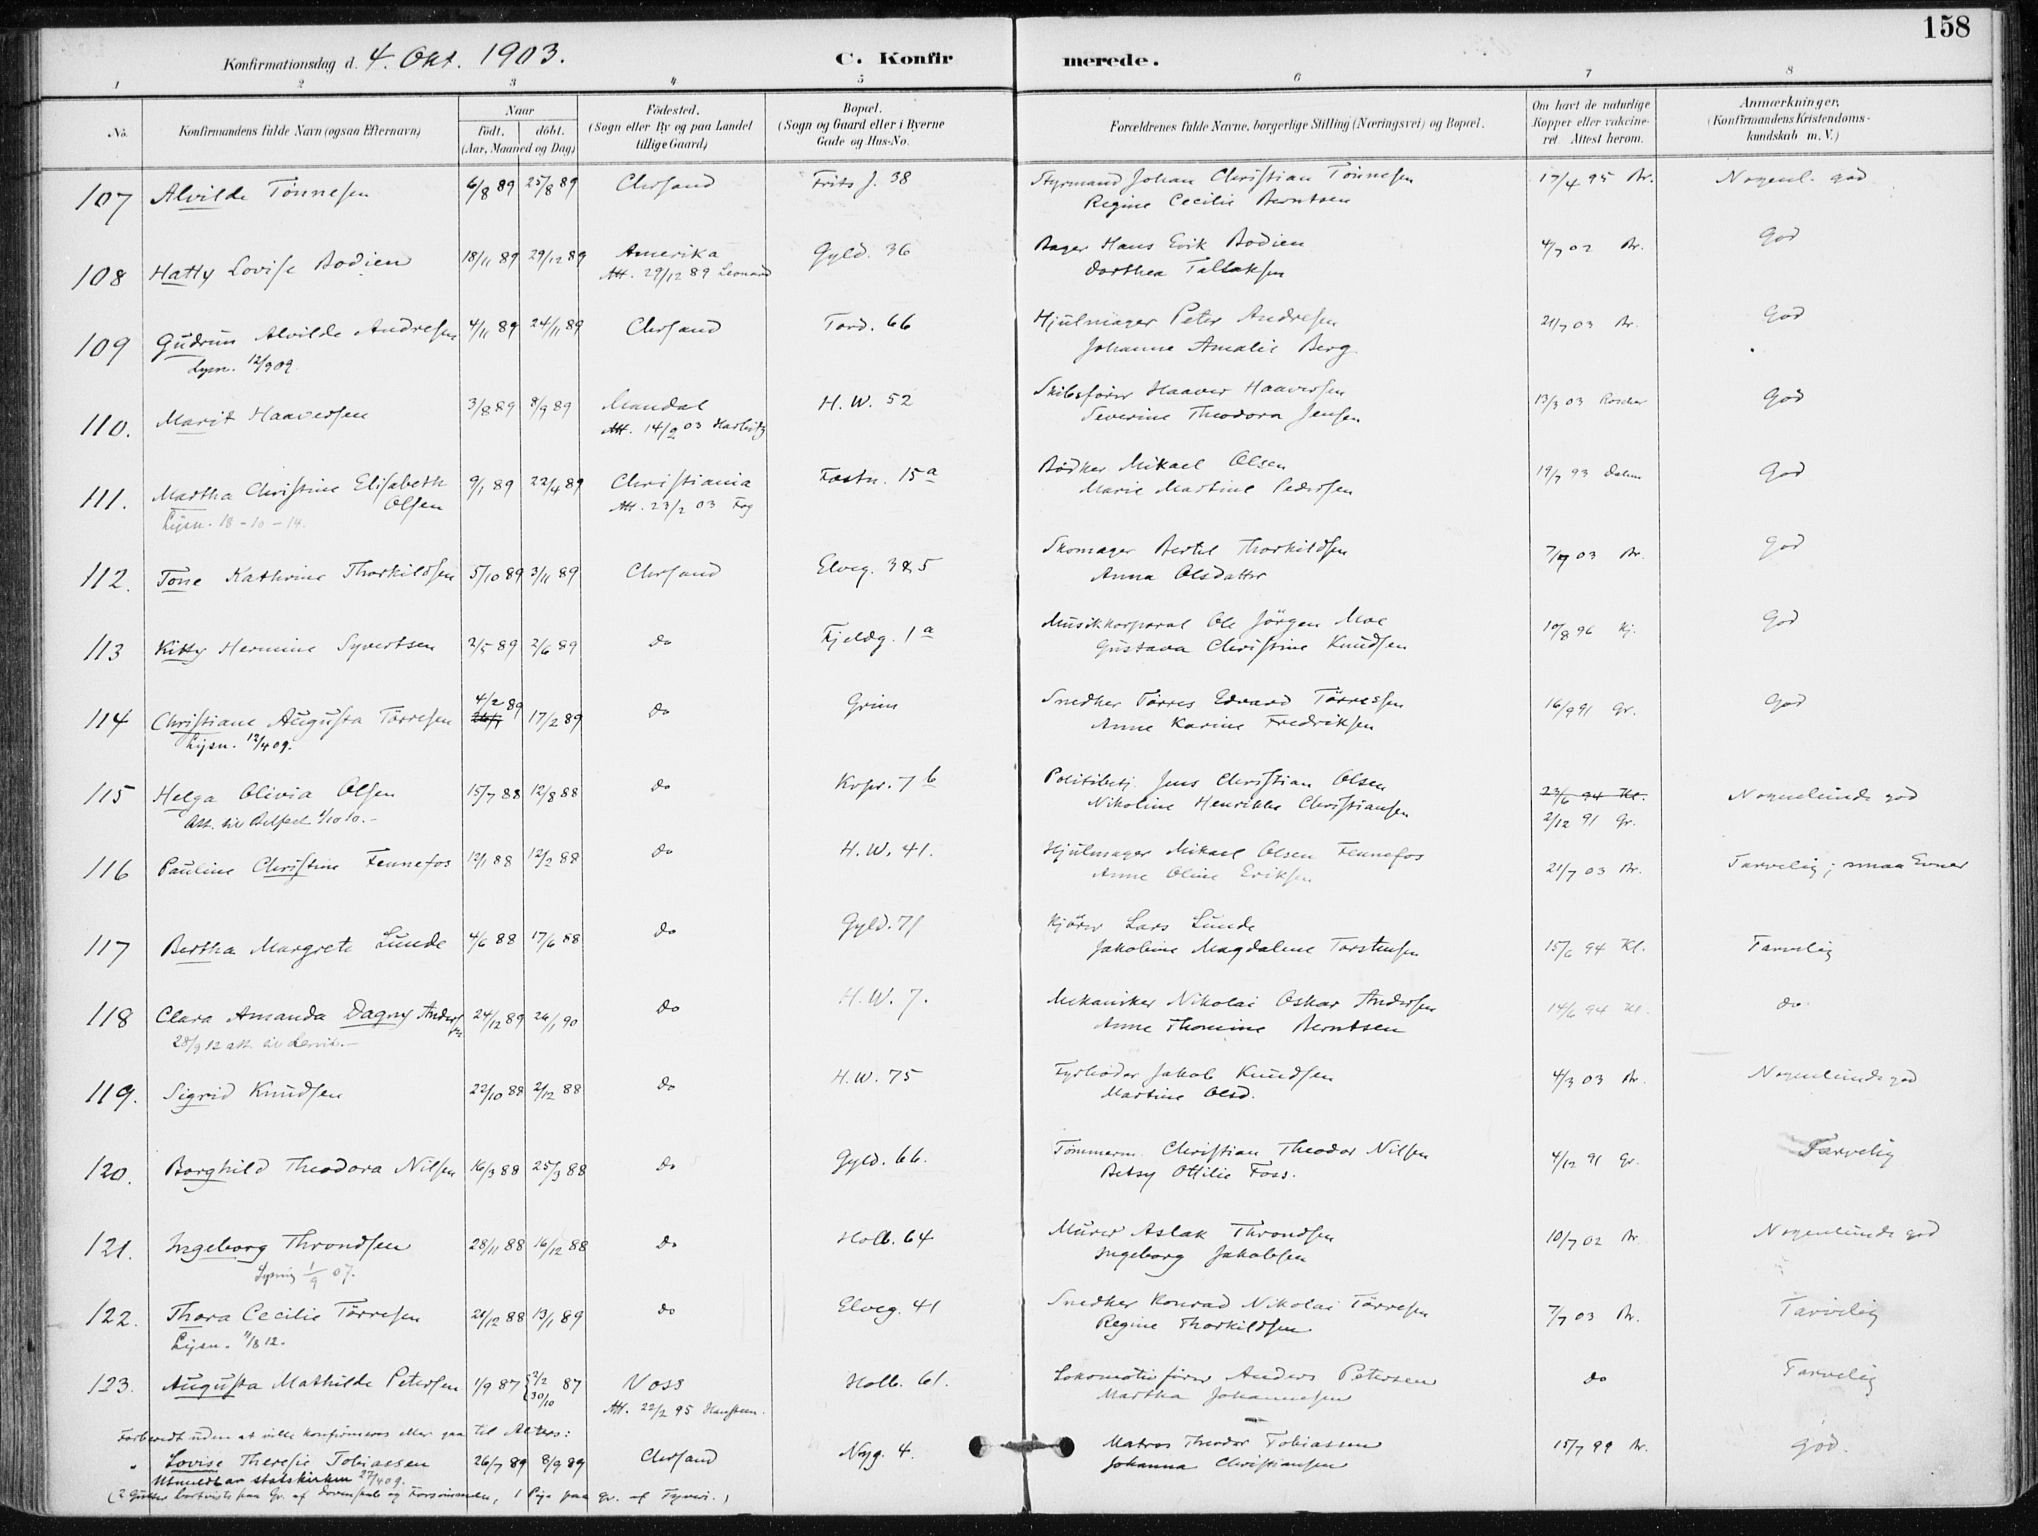 158
Konfirmationsdag d. 4. Okt. 1903. C. Konfirmerede.
1 2 3 4 5 6 7 8
No. Konfirmandens fulde Navn (ogsaa Efternavn) Naar født, døbt. (Aar, Maaned og Dag) Fødested. (Sogn eller By og paa Landet tillige Gaard) Bopæl. (Sogn og Gaard eller i Byerne Gade og Hus-No. Forældrenes fulde Navne, borgerlige Stilling (Næringsvei) og Bopæl. Om havt de naturlige Kopper eller vakcineret Attest herom. Anmærkninger, (Konfirmandens Kristendomskundskab m. V.)
107 Alvilde Tønnesen 6/8 89 25/8 89 Chrsand Frits J. 38 Styrmand Johan Christian Tønnesen 17/4 95 Br. Nogenl. god
Regine Cecilie Berntsen
108 Hatty Lovise Bodien 18/11 89 29/12 89 Amerika Gyld. 36 Bager Hans Erik Bodien 4/7 02 Br. God
Att. 29/12 89 Leonard Dorthea Tallaksen
109 Gudrun Alvilde Andresen 4/11 89 24/11 89 Chrsand Tord. 66 Hjulmager Peter Andresen 21/7 03 Br. God
Lysn. 12/9 09 Johanne Amalie Berg
110. Marit Haaversen 3/8 89 8/9 89 Mandal H. W. 52 Skibsfører Haaver Haaversen 13/3 03 God
Att. 14/9 03 Severine Theodora Jensen
111. Martha Christine Elisabeth Olsen 9/1 89 22/4 89 Christiania Fæstn. 15a Bødker Mikael Olsen 19/7 93 God
Lysn. 18-10-14. Att. 23/2 03 Marie Martine Pedersen
112. Tone Kathrine Thorkildsen 5/10 89 3/11 89 Chrsand Elveg. 385 Skomager Bertel Thorkildsen 7/7 03 Br. God
Anna Olsdatter
113 Kitty Hermine Syvertsen 2/5 89 2/6 89 do Fjeldg. 1a Musikkorporal Ole Jørgen Moe 10/8 96 Kj. God
Gustava Christine Knudsen
114 Christiane Augusta Tørresen 4/2 89 17/2 89 do Grim Snedker Tørres Edvard Tørresen 16/9 91 Gr. God
Lysn. 12/4 09. Anne Karine Fredriksen
115 Helga Olivia Olsen 15/7 88 12/8 88 do Krpr. 7b Politibetj. Jens Christian Olsen 23/6 94 Kl. Nogenlunde god
Att. til Belfast 1/10 10.- Nikoline Henrikke Christiansen 2/12 91 Gr.
116 Pauline Christine Fennefos 12/1 88 12/2 88 do H. W. 41. Hjulmager Mikael Olsen Fennefos 21/7 03 Br. Tarvelig; smaa Evner
Anne Oline Eriksen
117 Bertha Margrete Lunde 4/6 88 17/6 88 do Gyld. 71 Kjører Lars Lunde 15/6 94 Kl. Tarvelig
Jakobine Magdalene Torstensen
118 Clara Amanda Dagny Andersen 24/12 89 26/1 90 do H. W. 7. Mekaniker Nikolai Oskar Andersen 14/6 94 Kl. do
28/9 12 att. til Lervik.- Anne Thomine Berntsen
119. Sigrid Knudsen 22/10 88 2/12 88 do H. W. 75 Fyrbøder Jakob Knudsen 4/3 03 Br. Nogenlunde god
Martine Olsd.
120. Borghild Theodora Nilsen 16/3 88 25/3 88 do Gyld. 66. Tømmerm. Christian Theodor Nilsen 4/12 91 Gr. Tarvelig
Betsy Ottilie Foss.
121. Ingeborg Throndsen 28/11 88 16/12 88 do Holb. 64 Murer Aslak Throndsen 10/7 02 Br. Nogenlunde god
Lysning 1/9 07. Ingeborg Jakobsen
122. Thora Cecilie Tørresen 21/12 88 13/1 89 do Elveg. 41 Snedker Konrad Nikolai Tørresen 7/7 03 Br. Tarvelig
Lysn. 11/8 12. Regine Thorkildsen
123. Augusta Mathilde Petersen 1/9 87 2/2 30/10 87 Voss Holb. 61. Lokomotivfører Anders Petersen do Tarvelig
Att. 22/2 95 Hansteen. Martha Johannesen
Forberedt uden at ville konfirmeres eller gaa til Alters:
" Lovise Theresie Tobiassen 26/7 89 8/9 89 Chrsand Nyg. 4. Matros Theodor Tobiassen 15/7 99 Br. God.
Utmeldt av statskirken 27/4 09. Johanna Christiansen
(2 Gutter bortviste paa Gr. af Dovenskab og Forsømmelse, 1 Pige paa Gr. af Tyveri.)